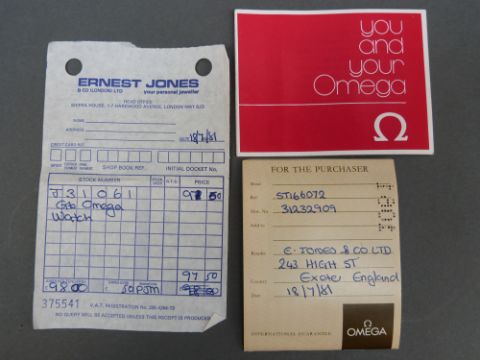 ERNEST JONES
& CO (LONDON) LTD your personal jeweller
HEAD OFFICE:
SHOPRA HOUSE, 1-7 HAREWOOD AVENUE, LONDON NW1
NAME
ADDRESS
DATE 18/7/81
CREDIT CARD NO.
SHOP BOOK REF. INITIAL DOCKET No.
STOCK NUMBER PRICE
J31061 97 50
Gts Omega
Watch
97 50
98.00 50p
375541 V.A.T. REGISTRATION No.
NO QUERY WILL BE ACCEPTED UNLESS THIS RECEIPT IS PRODUCED
you
and
your
Omega
Ω
FOR THE PURCHASER
Ref. ST166072
Mvt. No. 31232909
Sold to
Retailer E. JONES & CO. LTD
243 HIGH ST
Exeter England
Date 18/7/81
INTERNATIONAL GUARANTEE
Ω
OMEGA